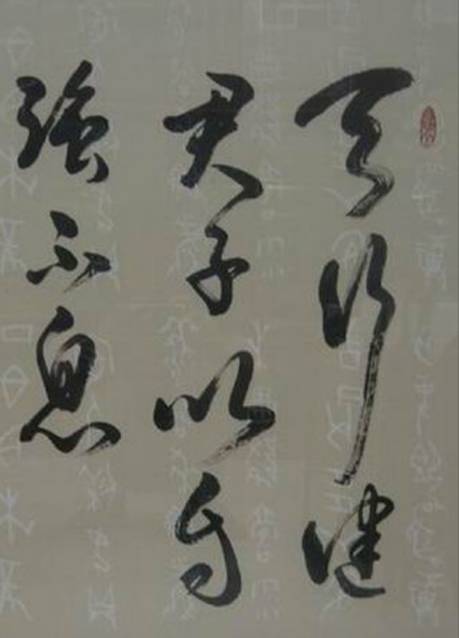 天行健
君子以自
強不息